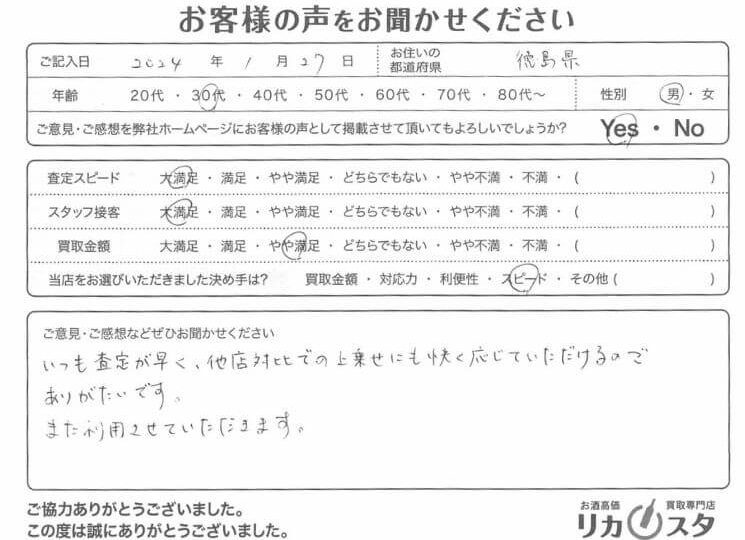 お客様の声をお聞かせください
ご記入日 2024 年 1 月 27 日 お住いの都道府県 徳島県
年齢 20代 ・ 30代 ・ 40代 ・ 50代 ・ 60代 ・ 70代 ・ 80代〜 性別 男 ・ 女
ご意見・ご感想を弊社ホームページにお客様の声として掲載させて頂いてもよろしいでしょうか? Yes ・ No
査定スピード 大満足 ・ 満足 ・ やや満足 ・ どちらでもない ・ やや不満 ・ 不満 ・ ( )
スタッフ接客 大満足 ・ 満足 ・ やや満足 ・ どちらでもない ・ やや不満 ・ 不満 ・ ( )
買取金額 大満足 ・ 満足 ・ やや満足 ・ どちらでもない ・ やや不満 ・ 不満 ・ ( )
当店をお選びいただきました決め手は? 買取金額 ・ 対応力 ・ 利便性 ・ スピード ・ その他 ( )
ご意見・ご感想などぜひお聞かせください
いつも査定が早く、他店対比での上乗せにも快く応じていただけるので
ありがたいです。
また利用させていただきます。
ご協力ありがとうございました。
この度は誠にありがとうございます。
お酒高価 買取専門店
リカスタ